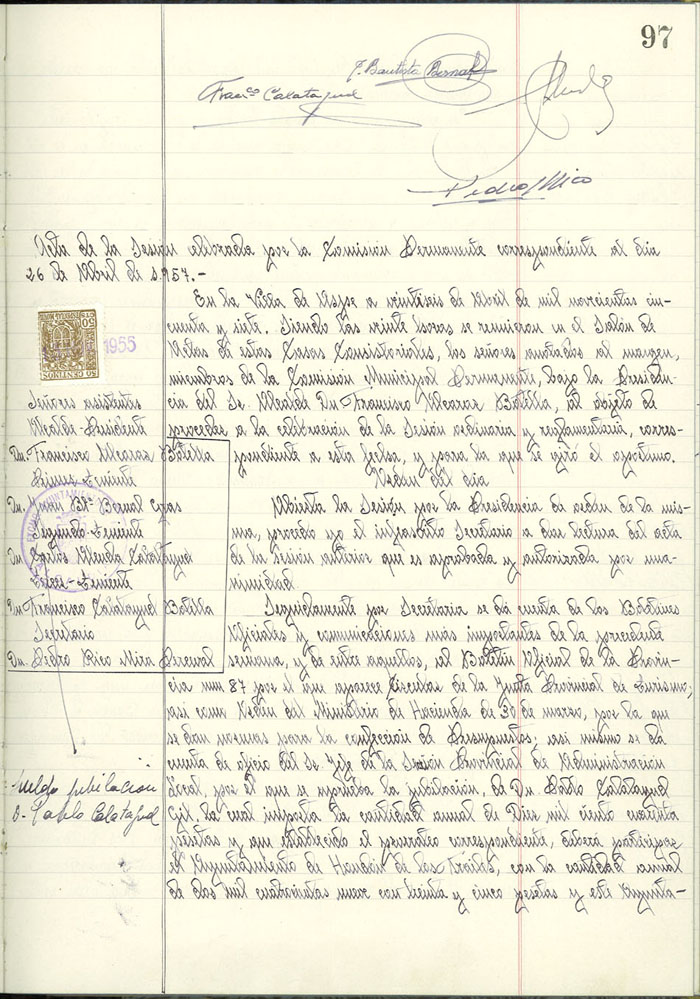 97
J. Bautista Bernal
Franco Calatayud
Pedro Rico
Acta de la Sesión celebrada por la Comisión Permanente correspondiente al dia
26 de Abril de 1.957.-
En la Villa de Aspe a veintiseis de Abril de mil novecientos cin-
cuenta y siete. Siendo las veinte horas se reunieron en el Salón de
Actos de estas Casas Consistoriales, los señores anotados al margen,
miembros de la Comisión Municipal Permanente, bajo la Presiden-
cia del Sr. Alcalde Dn Francisco Alcaraz Botella, al objeto de
proceder a la celebración de la Sesión ordinaria y reglamentaria, corres-
pondiente a esta fecha, y para la que se giró el oportuno.
Orden del dia
Abierta la Sesión por la Presidencia de orden de la mis-
ma, procedo yo el infrascrito Secretario a dar lectura del acta
de la Sesión anterior que es aprobada y autorizada por una-
nimidad.
Seguidamente por Secretaria se dá cuenta de los Boletines
Oficiales y comunicaciones más importantes de la precedente
semana, y de entre aquellos, al Boletín Oficial de la Provin-
cia num 87 por el que aparece Circular de la Junta Provincial de Turismo,
asi como Orden del Ministerio de Hacienda de 30 de marzo, por la que
se dan normas para la confección de Presupuestos; asi mismo se dá
cuenta de oficio del Sr Jefe de la Sección Provincial de Administración
Local, por el que se aprueba la jubilación, de Dn. Pablo Calatayud
Gil, la cual importa la cantidad anual de Diez mil ciento cuarenta
pesetas y que establecido el prorrateo correspondiente, deberá participar
el Ayuntamiento de Hondón de los Frailes, con la cantidad anual
de dos mil cuatrocientas nueve con treinta y cinco pesetas y este Ayunta-
50 CENTIMOS
1955
Señores asistentes
Alcalde-Presidente
Dn. Francisco Alcaraz Botella
Primer Teniente
Dn. Juan Btª Bernal
Segundo Teniente
Dn. Calatayud
Tercer-Teniente
Dn Francisco Calatayud Botella
Secretario
Dn. Pedro Rico Mira Perceval
Sueldo jubilación
D. Pablo Calatayud